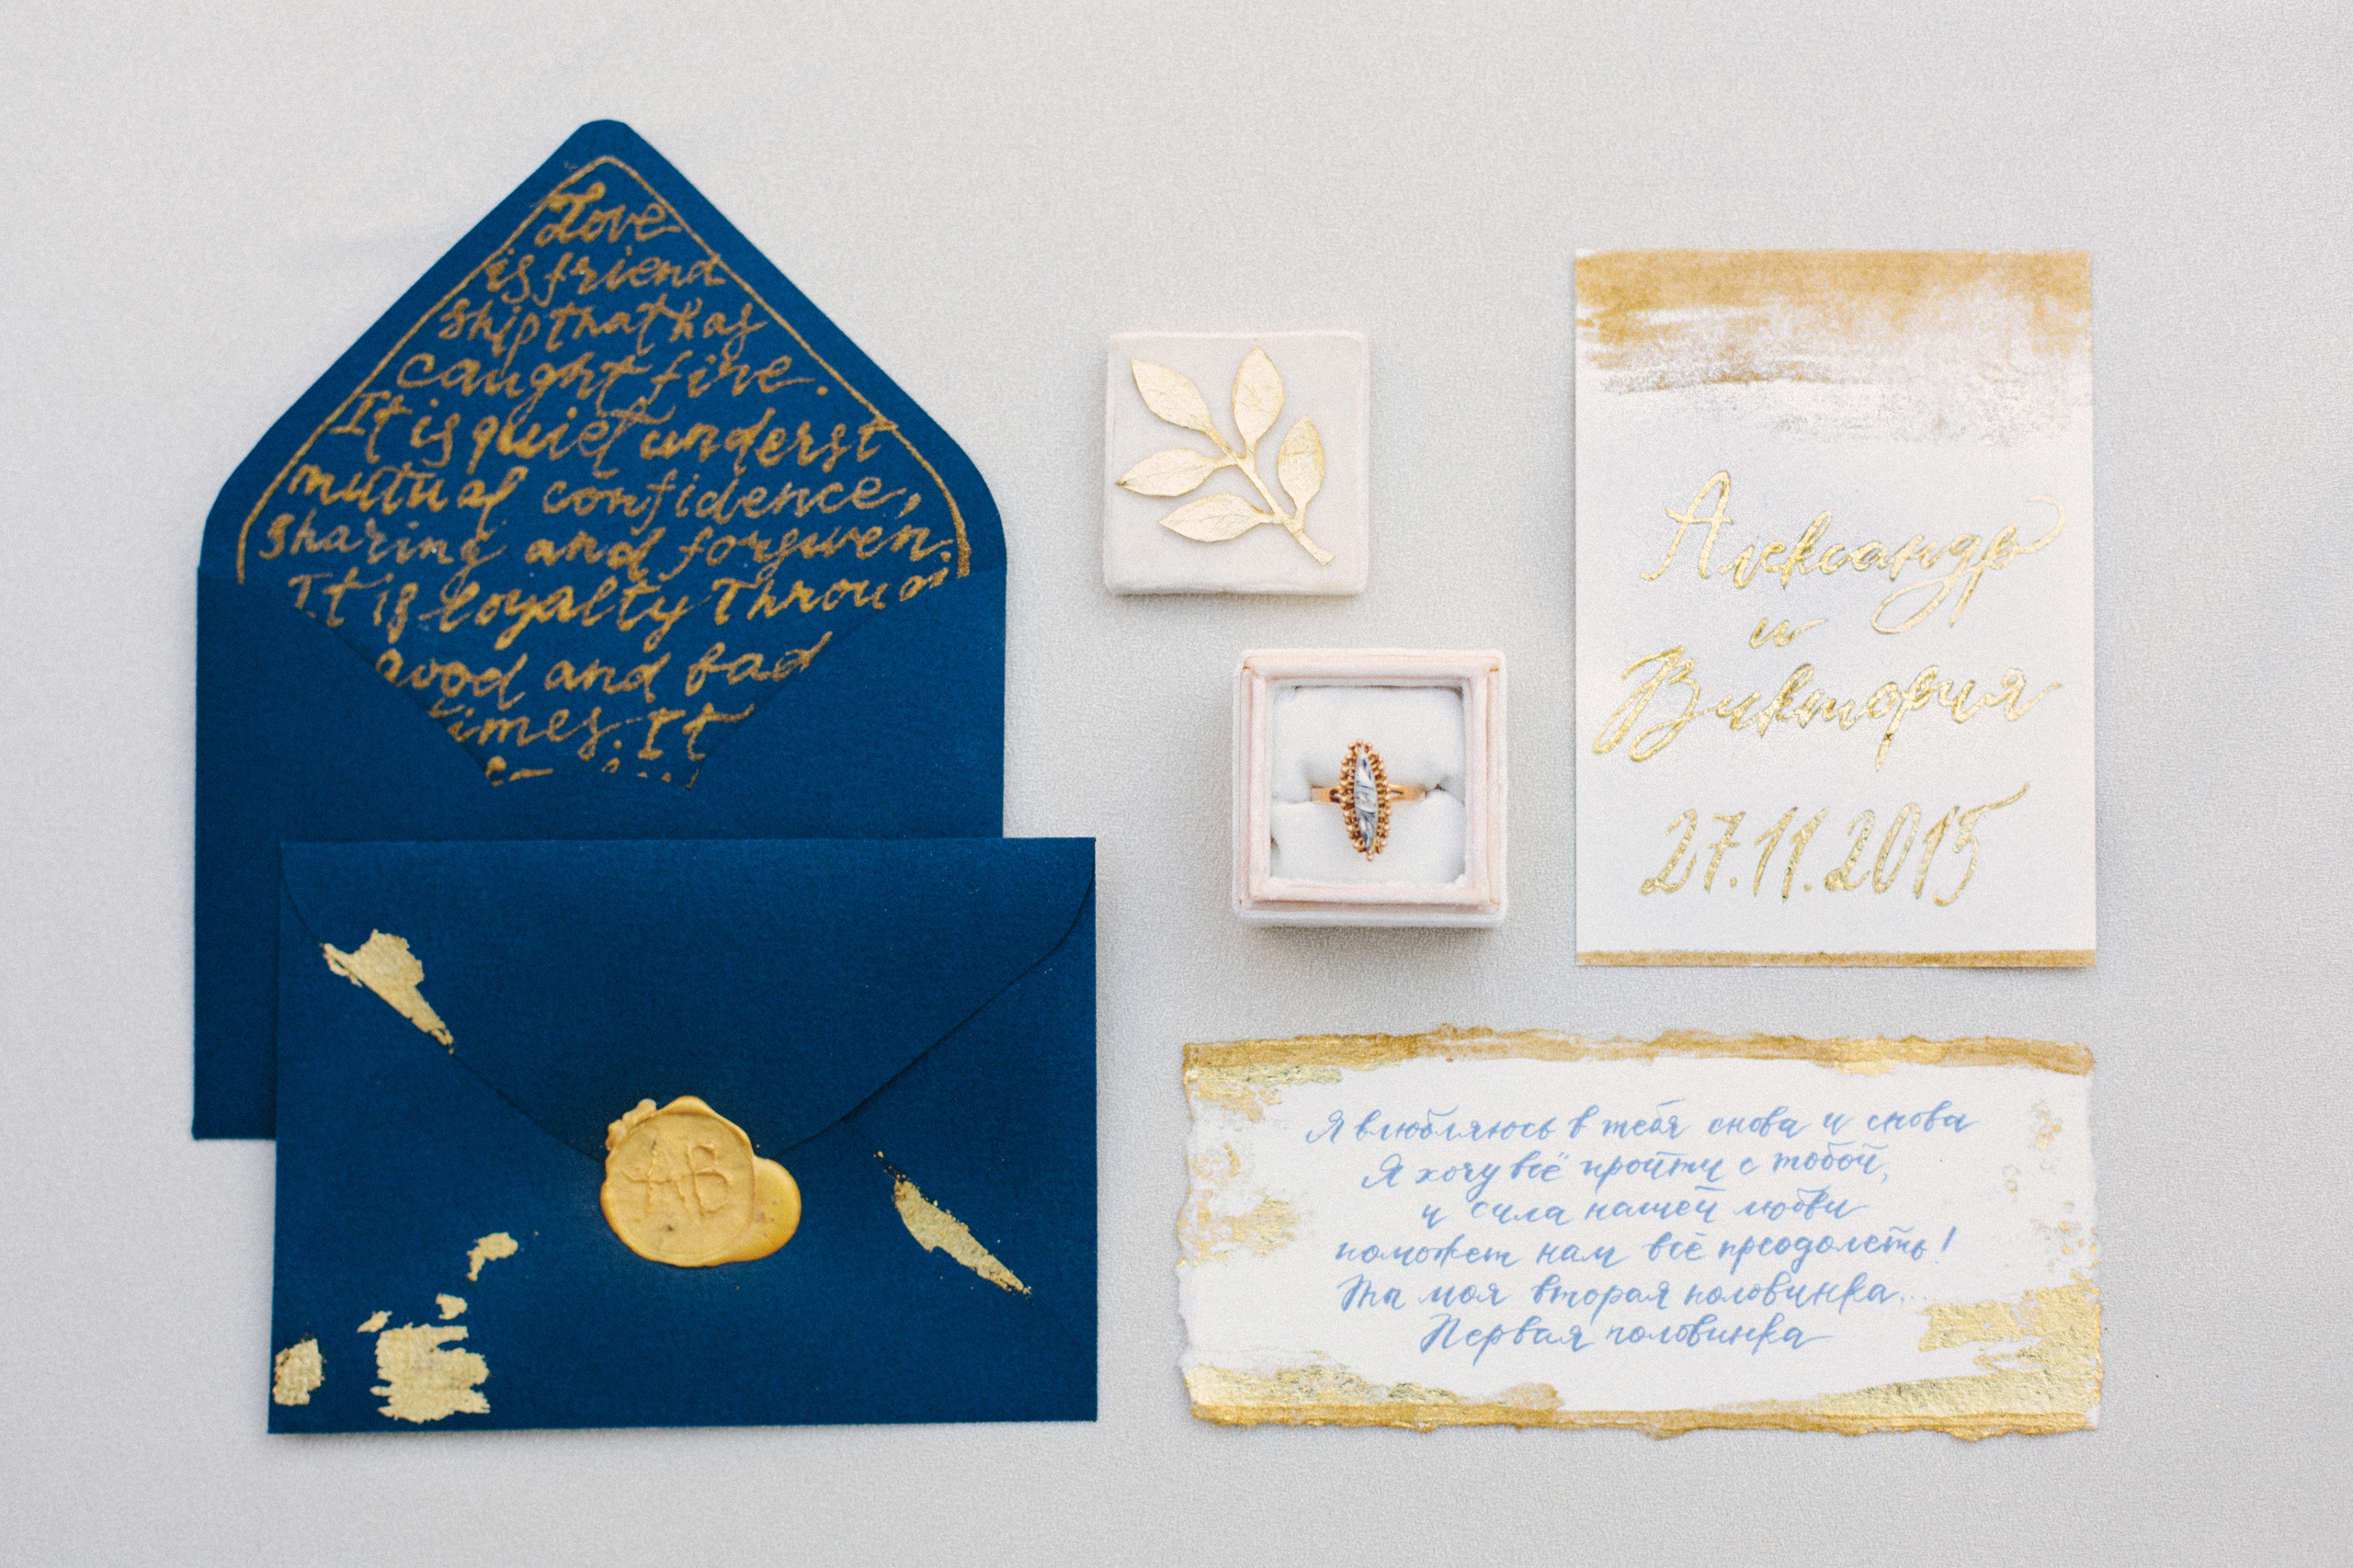 Love
is friend
ship that has
caught fire.
It is quiet underst
mutual confidence,
sharing and forgiven.
It is loyalty Throu
good and bad
times. It
АВ
Александр
и
Виктория
27.11.2015
Я влюбляюсь в тебя снова и снова
Я хочу всё пройти с тобой,
и сила нашей любви
поможет нам всё преодолеть!
Ты моя вторая половинка...
Первая половинка